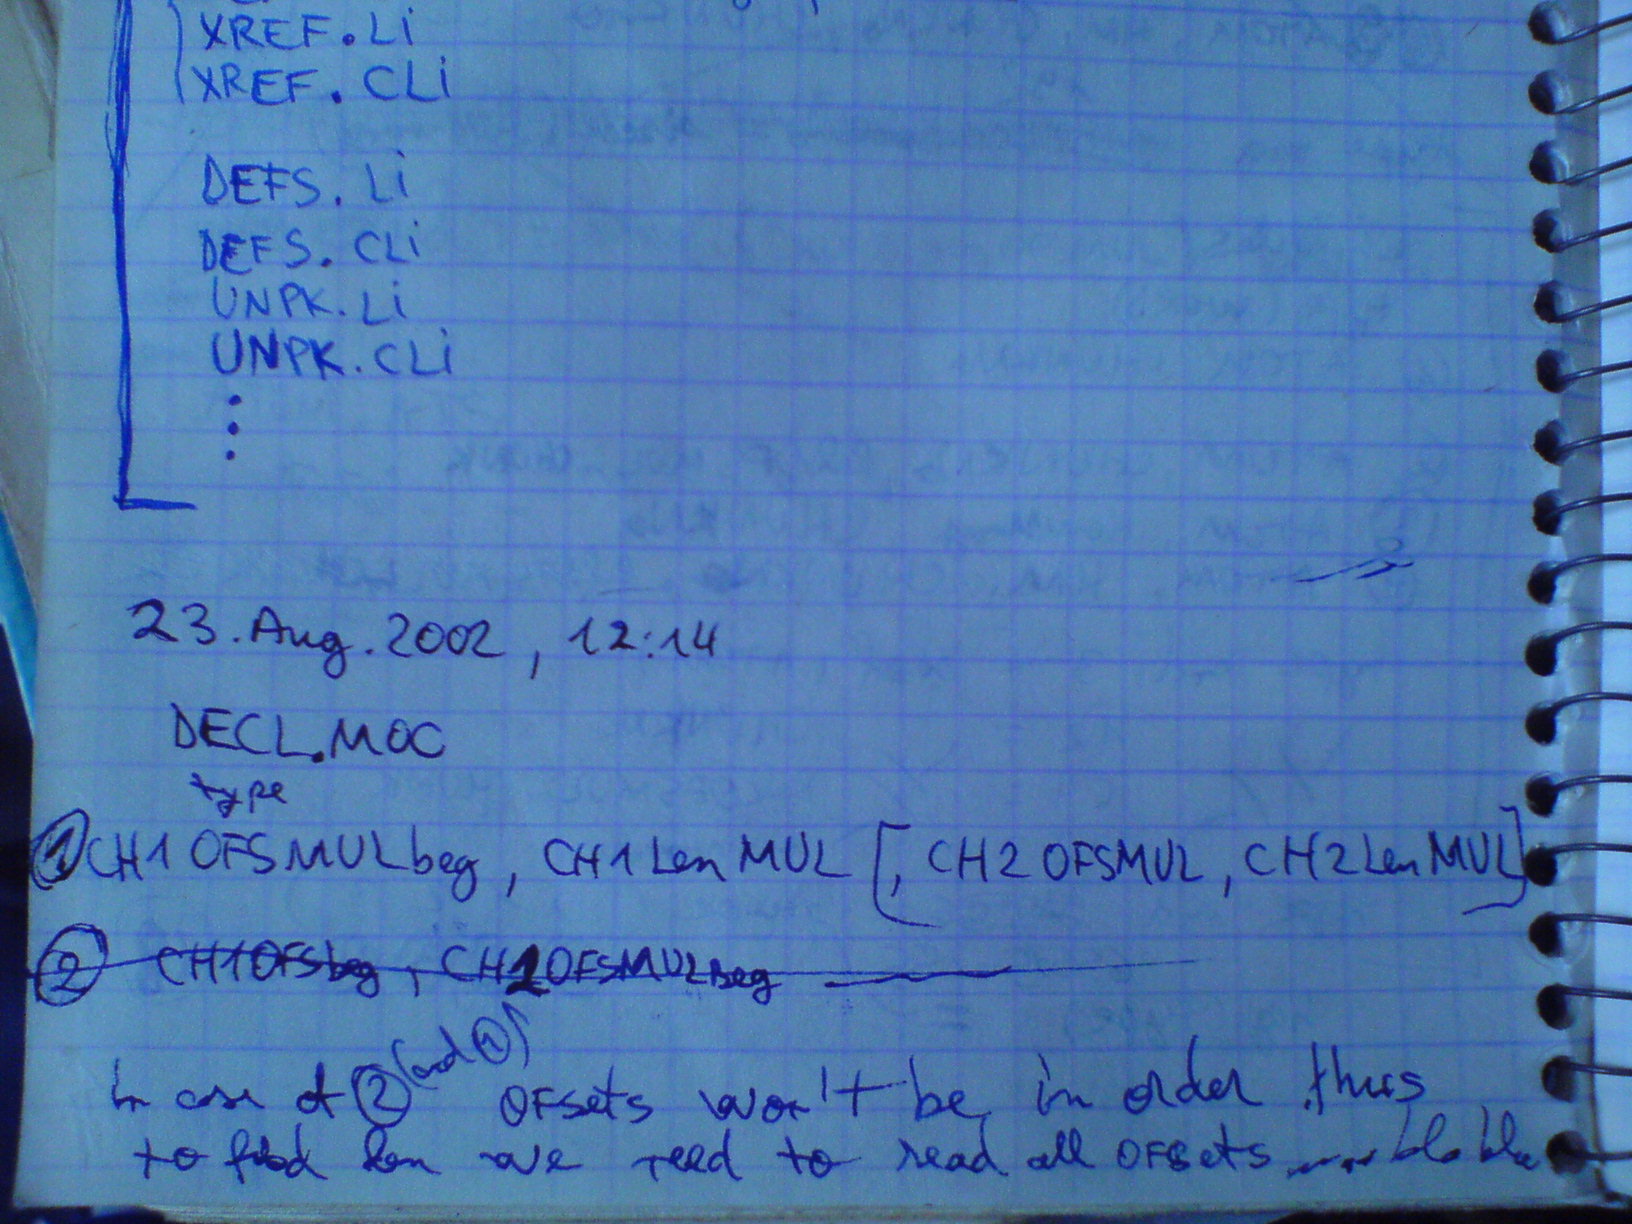 XREF.Li
XREF.CLi
DEFS.Li
DEFS.CLi
UNPK.Li
UNPK.CLi
23.Aug.2002, 12:14
DECL.MOC
type
① CH1OFSMULbeg, CH1LenMUL [, CH2OFSMUL, CH2LenMUL]
② CH1OFSbeg, CH2OFSMULBeg
In case of ② (and ①) OFSets won't be in order thus
to find len we need to read all OFSets ... bla bla